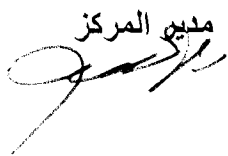 مدير المركز